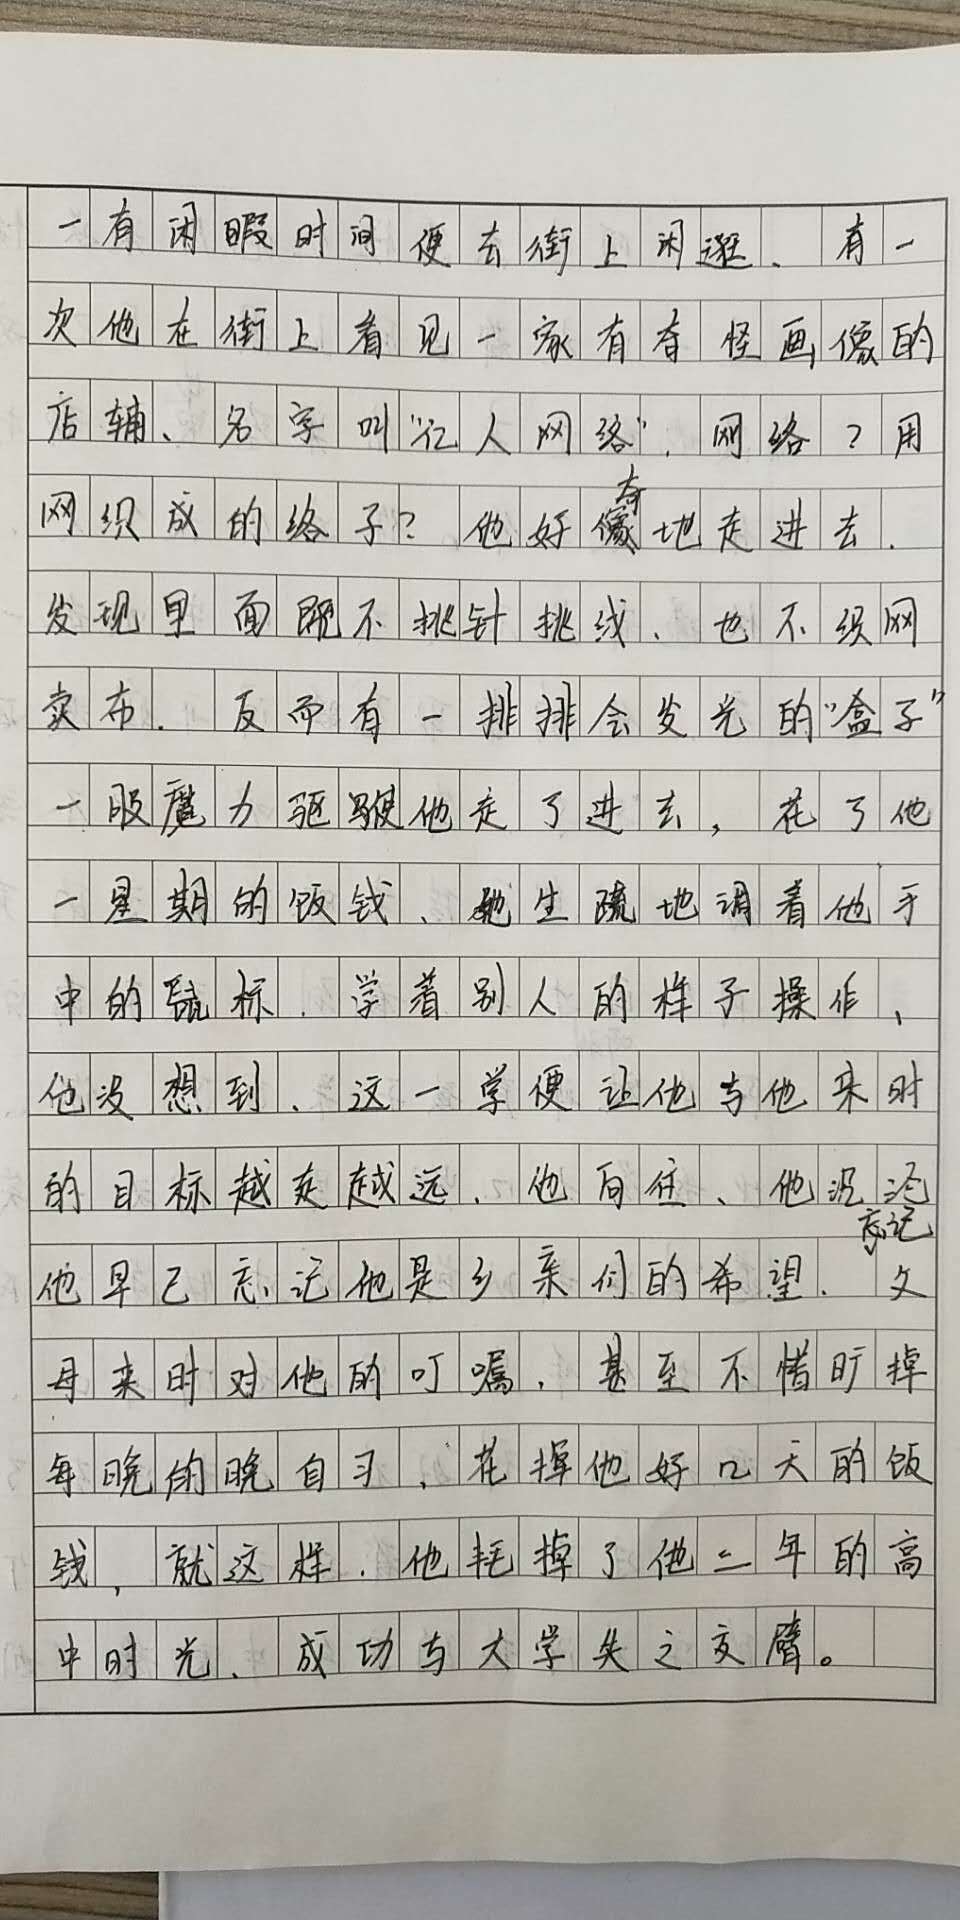 一有闲暇时间便去街上闲逛、有一
次他在街上看见一家有奇怪画像的
店铺、名字叫“亿人网络”，网络？用
网织成的络子？他好奇地走进去．
发现里面既不挑针挑线、也不织网
卖布．反而有一排排会发光的“盒子”
一股魔力驱使他走了进去，花了他
一星期的饭钱、他生疏地调着他手
中的鼠标．学着别人的样子操作、
他没想到、这一学便让他与他来时
的目标越走越远、他向往、他沉沦
忘记
他早已忘记他是乡亲们的希望．父
母来时对他的叮嘱，甚至不惜旷掉
每晚的晚自习、花掉他好几天的饭
钱，就这样．他耗掉了他三年的高
中时光、成功与大学失之交臂。